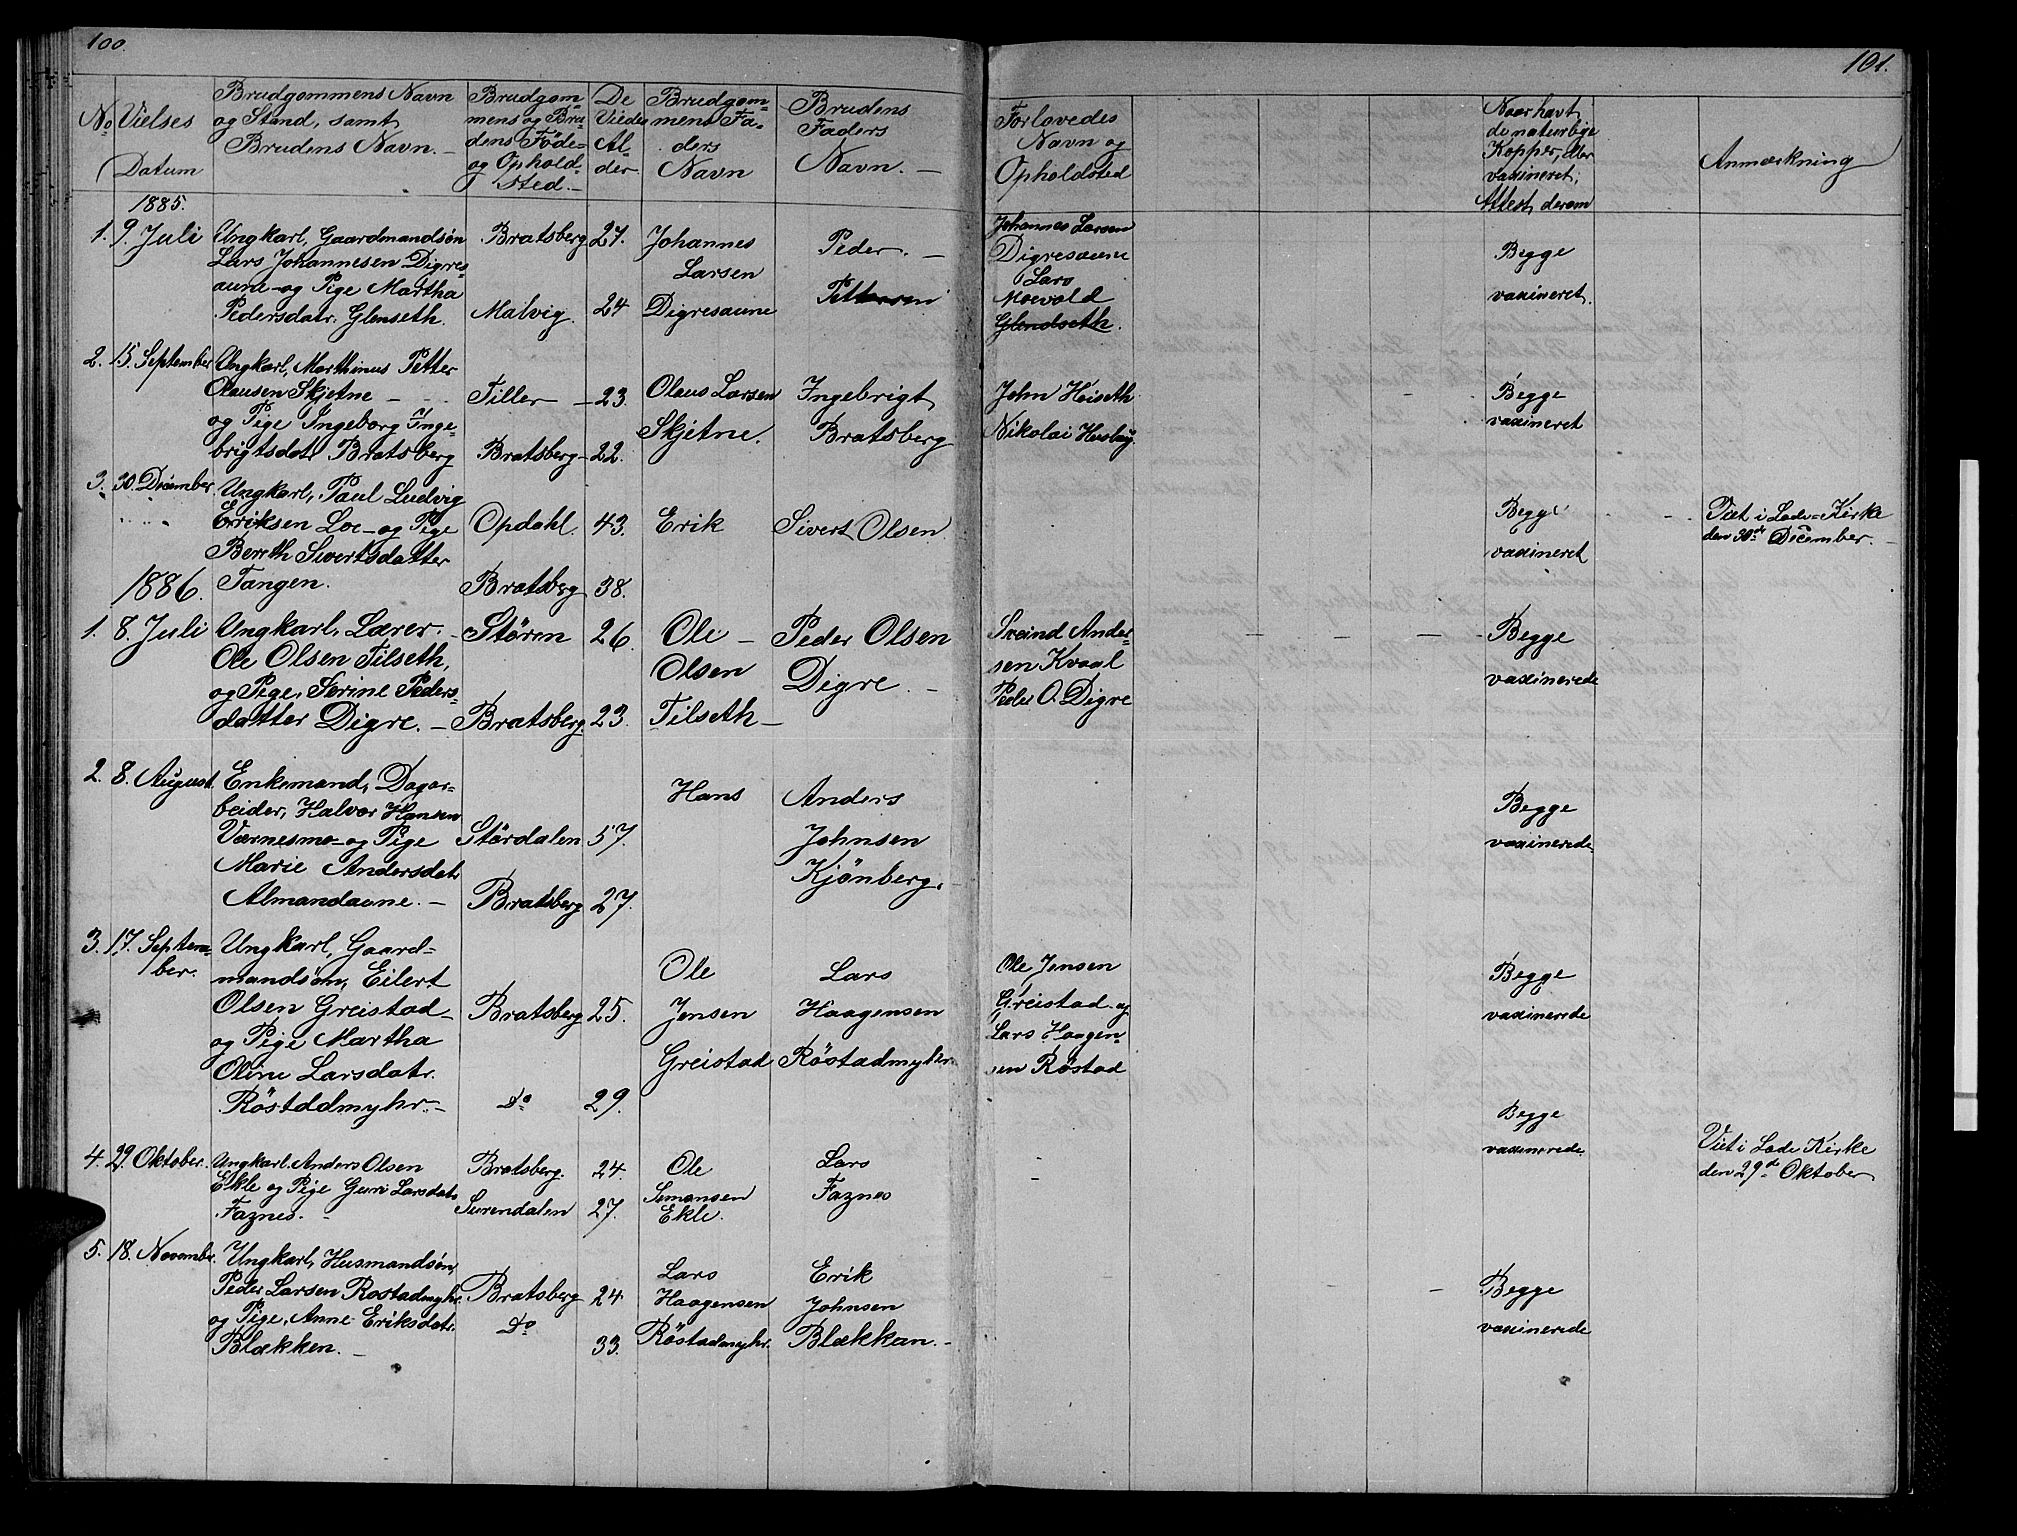 100.
101.
No Vielses Datum
Brudgommens Navn
og Stand, samt
Brudens Navn. —
Brudgom-
mens og Bru-
dens Föde-
og Ophold-
sted. —
De
Viedes
Al-
der
Brudgom-
mens Fa-
ders
Navn
Brudens
Faders
Navn. —
Forlovedes
Navn og
Opholdsted
Naar havt
de naturlige
Kopper, eller
vaxineret,
Attest derom
Anmærkning
1885.
1. 9. Juli
Ungkarl, Gaardmandsön
Lars Johannesen Digres-
aune og Pige Martha
Pedersdatr. Glenseth.
Bratsberg 27.
Malvig. 24
Johannes
Larsen
Digresaune
Peder. —
Pettersen
Johannes Larsen
Digresaune
Lars
Moevold
Glendseth.
Begge
vaxineret.
2. 15. September
Ungkarl, Marthinus Petter
Olausen Skjetne —
og Pige Ingeborg Inge-
brigtsdatr Bratsberg
Tiller — 23.
Bratsberg — 22.
Olaus Larsen
Skjetne.
Ingebrigt
Bratsberg
John Höiseth
Nikolai Husby
Begge
vaxineret
3. 30. December
Ungkarl, Paul Ludvig
Eriksen Loe — og Pige
Bereth Sivertsdatter
Tangen.
Opdahl. 43.
Bratsberg 38.
Erik
Sivert Olsen
Begge
vaxineret
Viet i Lade-Kirke
den 30de December. —
1886.
1. 8. Juli
Ungkarl, Lærer. —
Ole Olsen Tilseth,
og Pige, Serine Peders-
datter Digre. —
Stören 26.
Bratsberg. 23.
Ole —
Olsen
Tilseth —
Peder Olsen
Digre. —
Sveind Ander-
sen Kvaal
Peder O. Digre
Begge
vaxinerede
2. 8. August
Enkemand, Dagar-
beider, Halvor Hansen
Værnesmo og Pige
Marie Andersdatr
Almandaune. —
Stördalen 57.
Bratsberg 27.
Hans
Anders
Johnsen
Kjönberg.
Begge
vaxinerede
3. 17. Septem-
ber.
Ungkarl, Gaard-
mandsön, Eilert
Olsen Greistad —
og Pige Martha
Oline Larsdatr.
Röstddmyhr. —
Bratsberg 25.
Do 29.
Ole
Jensen
Greistad
Lars
Haagensen
Röstadmyhr
Ole Jensen
Greistad og
Lars Haagen-
sen Röstad
Begge
vaxinerede
4. 29. Oktober.
Ungkarl. Anders Olsen
Ekle og Pige Guri Larsdatr
Faznes. —
Bratsberg. 24.
Surendalen 27.
Ole
Simonsen
Ekle.
Lars
Faznes
Begge
vaxinerede
Viet i Lade Kirke
den 29de Oktober
5. 18. November.
Ungkarl, Husmandsön,
Peder Larsen Rostadmyhr.
og Pige, Anne Eriksdatr.
Blækken. —
Bratsberg 24
Do 33.
Lars
Haagensen
Röstadmyhr.
Erik
Johnsen
Blækkan. —
Begge
vaxinerede